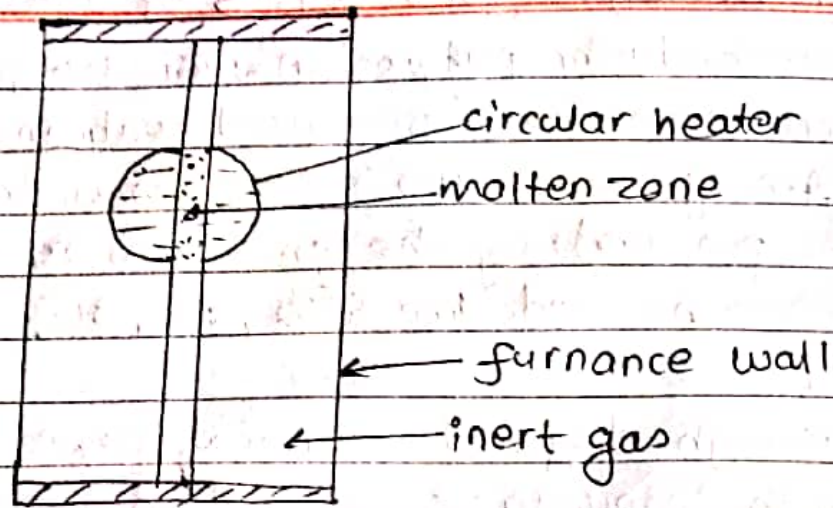 circular heater
molten zone
furnance wall
inert gas